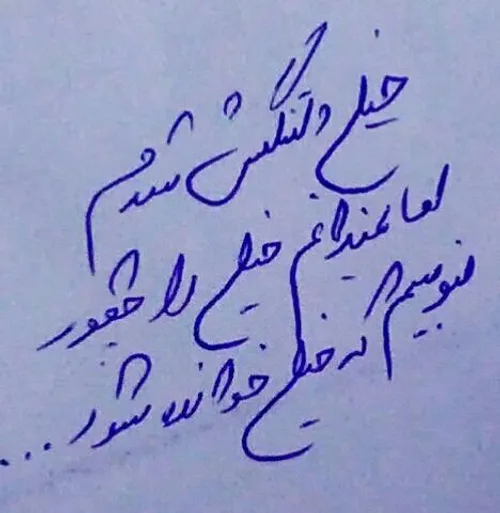 خیلی دلتنگش شدم
اما نمیدانم خیلی را چطور
بنویسم که خیلی خوانده شود...